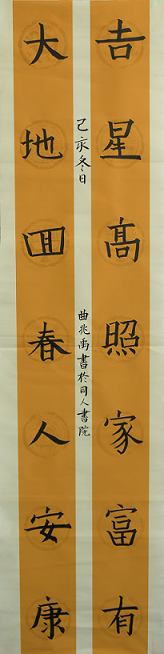 吉星髙照家富有
大地回春人安康
己亥冬日
曲兆禹書於同人書院